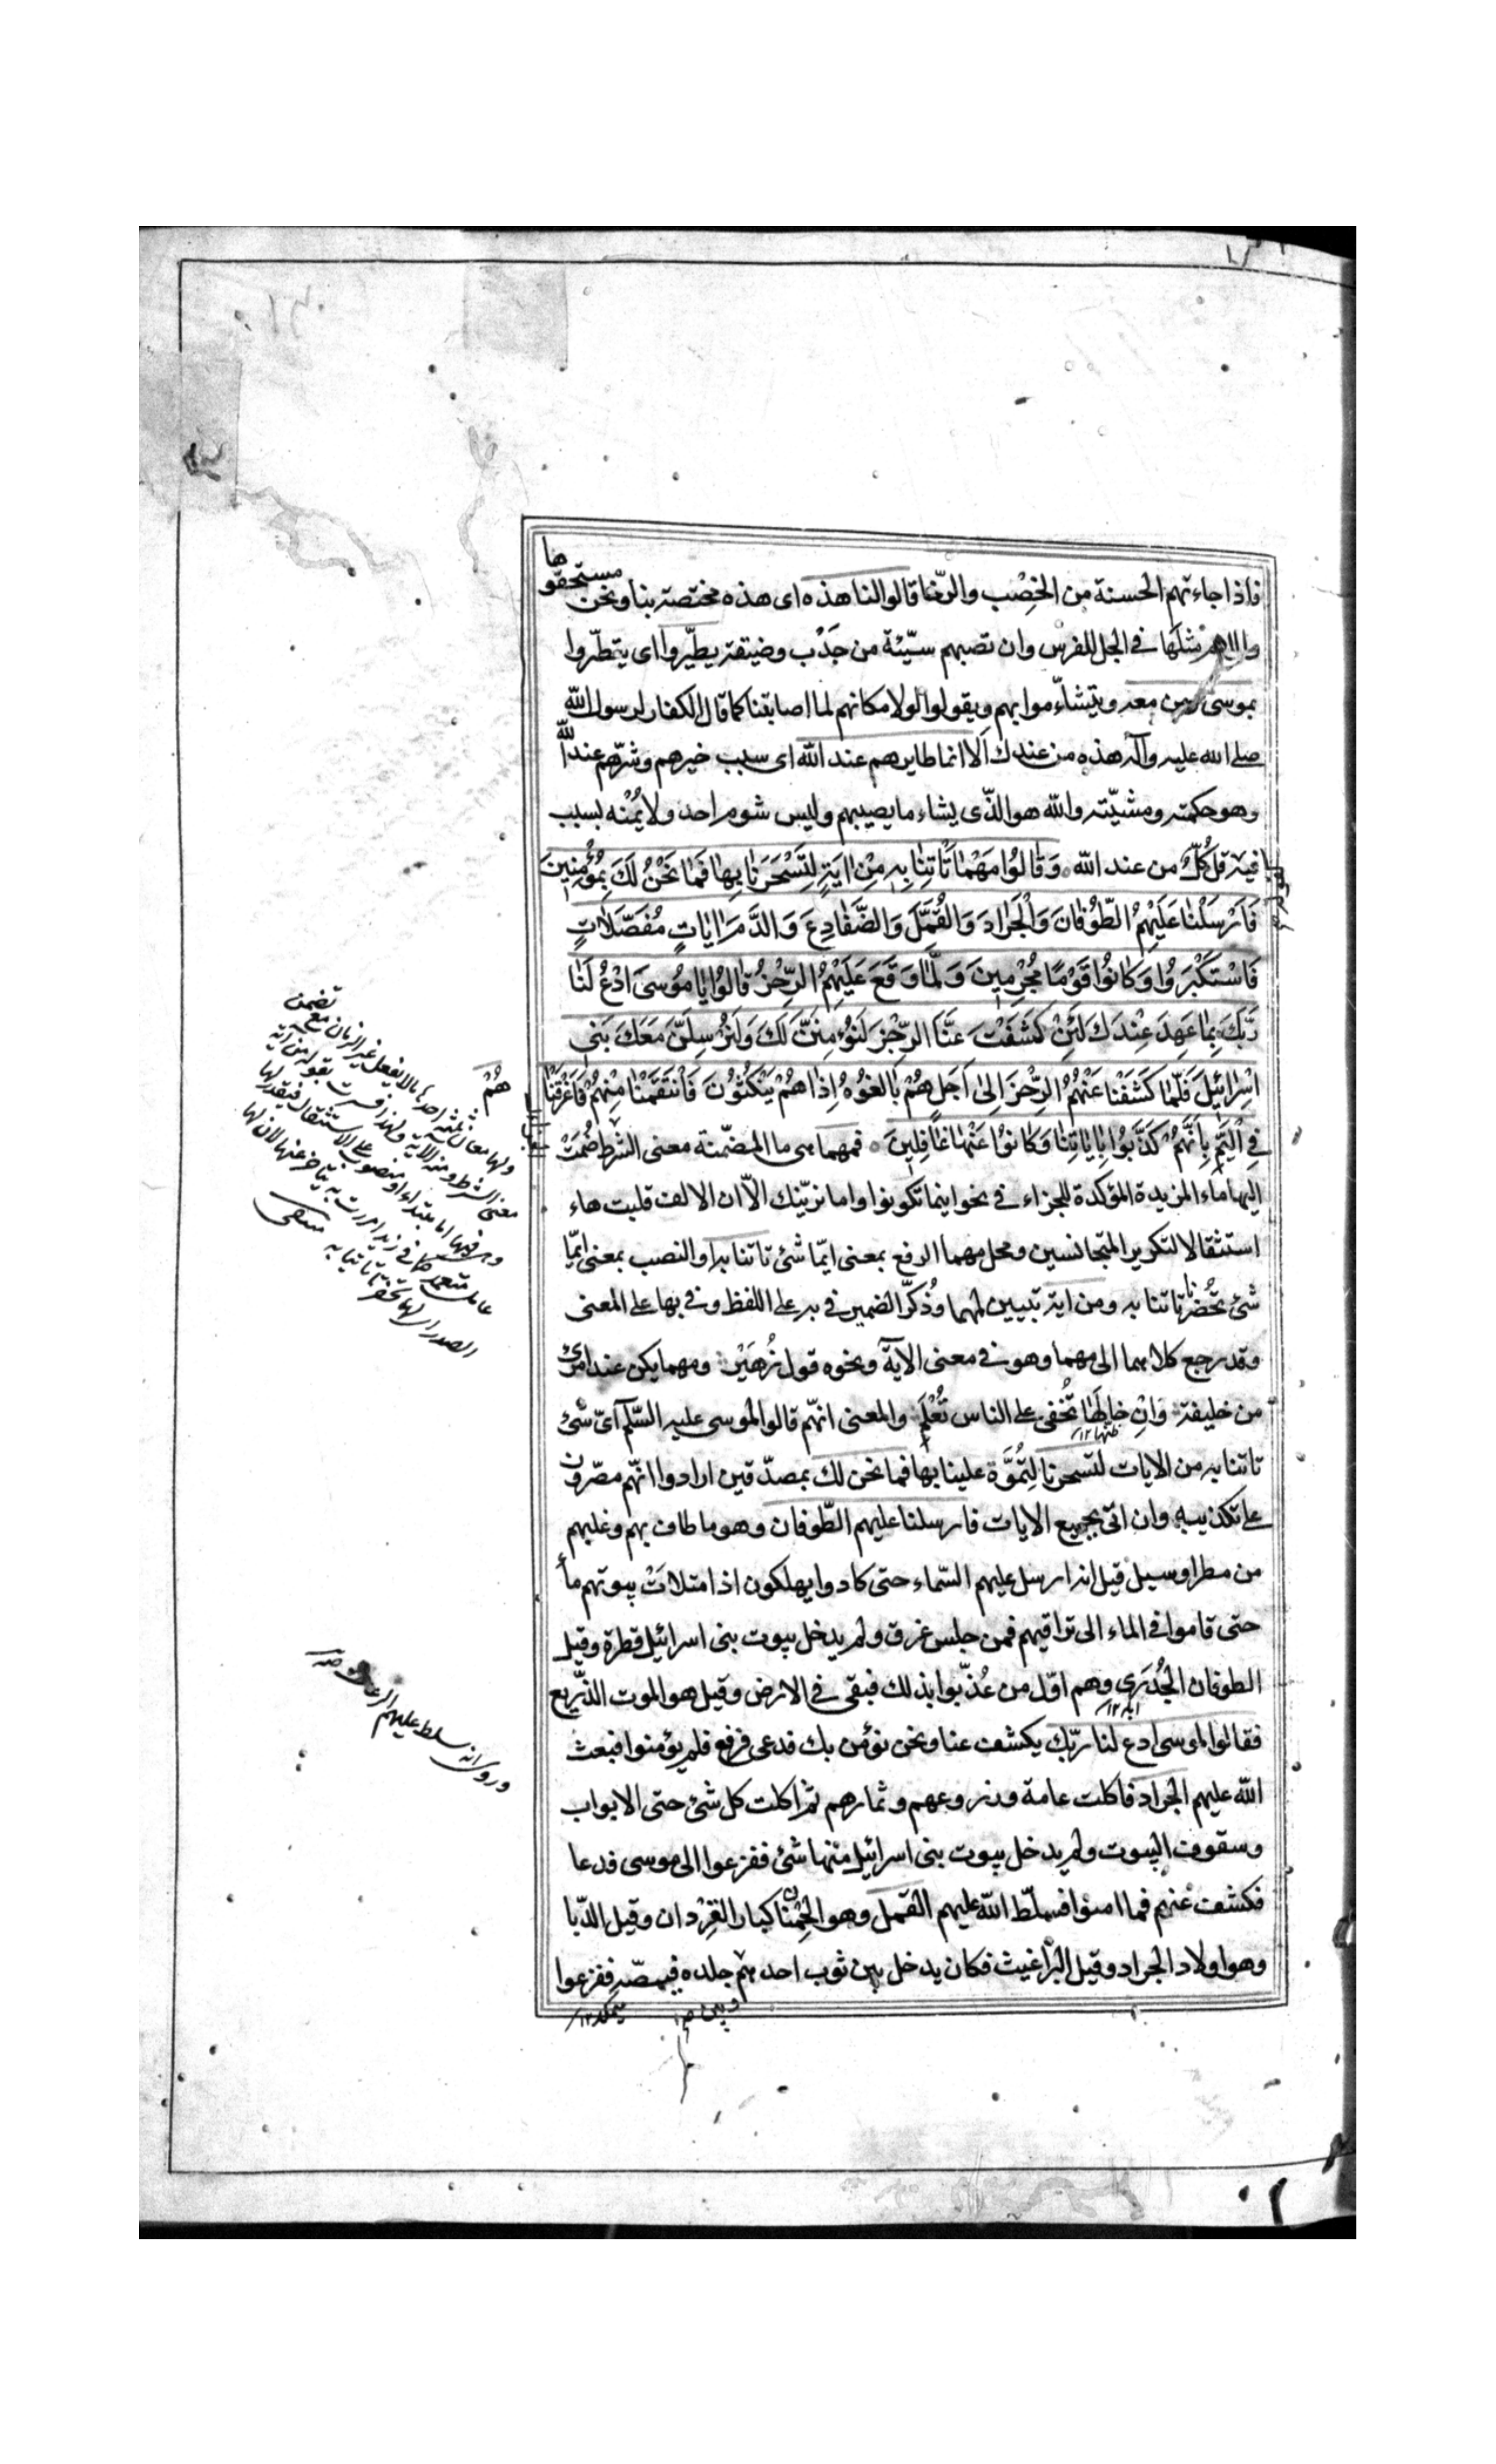 فاذا جاءتهم الحسنة من الخِصْب والرّخا قالوا لنا هذه اى هذه مختصة بنا ونحن مستحقوها
واللام مثلها فى الجل للفرس وان تصبهم سيّئة من جَدْب وضيقة يطيّروا اى يتطيّروا
بموسى ومن معه ويتشأّموا بهم ويقولوا لولا مكانهم لما اصابتنا كما قال الكفار لرسول الله
صلے الله عليه وآله هذه من عندك اَلا انما طايرهم عند الله اى سبب خيرهم وشرّهم عند الله
وهو حكمته ومشيّته والله هو الذّى يشاء ما يصيبهم وليس شوم احد ولا يُمْنه بسبب
فيه قل كُلّ من عند الله ٥ وَقٰالُوا مَهْمٰا تَأْتِنٰا بِهِ مِنْ اٰيَةٍ لِتَسْحَرَنٰا بِهٰا فَمٰا نَحْنُ لَكَ بِمُؤْمِنِينَ
فَاَرْسَلْنٰا عَلَيْهِمُ الطّوُفٰانَ وَالْجَرٰادَ وَالْقُمَّلَ وَالضَّفٰادِعَ وَالدَّمَ اٰيٰاتٍ مُفَصَّلاٰتٍ
فَاسْتَكْبَرُوا وَكٰانُوا قَوْمًا مُجْرِمِينَ وَلَمّٰا وَقَعَ عَلَيْهِمُ الرِّجْزُ قٰالُوا يٰا مُوسَى ادْعُ لَنٰا
رَبَّكَ بِمٰا عَهِدَ عِنْدَكَ لَئِنْ كَشَفْتَ عَنَّا الرِّجْزَ لَنُؤْمِنَنَّ لَكَ وَلَنُرْسِلَنَّ مَعَكَ بَنِى
اِسْرٰائيلَ فَلَمّٰا كَشَفْنٰا عَنْهُمُ الرِّجْزَ اِلىٰ اَجَلٍ هُمْ بٰالِغُوهُ اِذٰا هُمْ يَنْكُثُونَ فَانْتَقَمْنٰا مِنْهُمْ فَاَغْرَقْنٰا
هُمْ
فِى الْيَمِّ بِاَنَّهُمْ كَذَّبُوا بِاٰيٰاتِنٰا وَكٰانُوا عَنْهٰا غٰافِلِينَ ٥ فمهما هى ما المضمّنة معنى الشرط ضُمّتْ
اليها ماء المزيدة المؤكدة للجزاء فى نحو اينما تكونوا واما نرينّك الاّ ان الالف قلبت هاء
استثقالا لتكرير المتجانسين ومحل مهما الرفع بمعنى ايّما شئ تاتنا به او النصب بمعنى ايّما
شئ تُحْضُرنا تاتنا به ومن اية تبيين لمهما وذُكرّ الضمير فى به على اللفظ وفى بها على المعنى
وقد رجع كلاهما الى مهما وهو فى معنى الاية ونحوه قول زُهَيْر ومهما يكن عند امرئ
من خليفة وَاِنْ خالَهٰا تُخفى على الناس تُعْلَمِ والمعنى انهّم قالوا لموسى عليه السّلم اىّ شئ
ظنّها ١٢
تاتنا به من الايات لتسحرنا لِتُمُوَّة علينا بها فما نحن لك بمصدّقين ارادوا انهّم مصّرون
على تكذيبه وان اتى بجميع الايات فارسلنا عليهم الطّوفان وهو ما طاف بهم وغلبهم
من مطر او سيل قيل انه ارسل عليهم السّماء حتى كادوا يهلكون اذ امتلات بيوتهم ماء
حتى قاموا فى الماء الى تراقيهم فمن جلس غرق ولم يدخل بيوت بنى اسرائيل قطرة وقيل
الطوفان الجُدَرِى وهم اوّل من عُذّبوا بذلك فبقى فى الارض وقيل هو الموت الذّريع
ابله ١٢
فقالوا لموسى ادع لنا ربّك يكشف عنا ونحن نؤمن بك فدعى فرفع فلم يؤمنوا فبعث
الله عليهم الجراد فاكلت عامة وزروعهم وثمارهم ثم اكلت كل شئ حتى الابواب
وسقوف البيوت ولم يدخل بيوت بنى اسرائيل منها شئ ففزعوا الى موسى فدعا
فكشف عنهم فما امنوا فسلّط الله عليهم القمل وهو الحِمْنان كبار القِرْدان وقيل الدّبا
وهو اولاد الجراد وقيل البراغيث فكان يدخل بين ثوب احدهم جلده فيمصّه ففزعوا
وروى انه سلط عليهم الرعاف